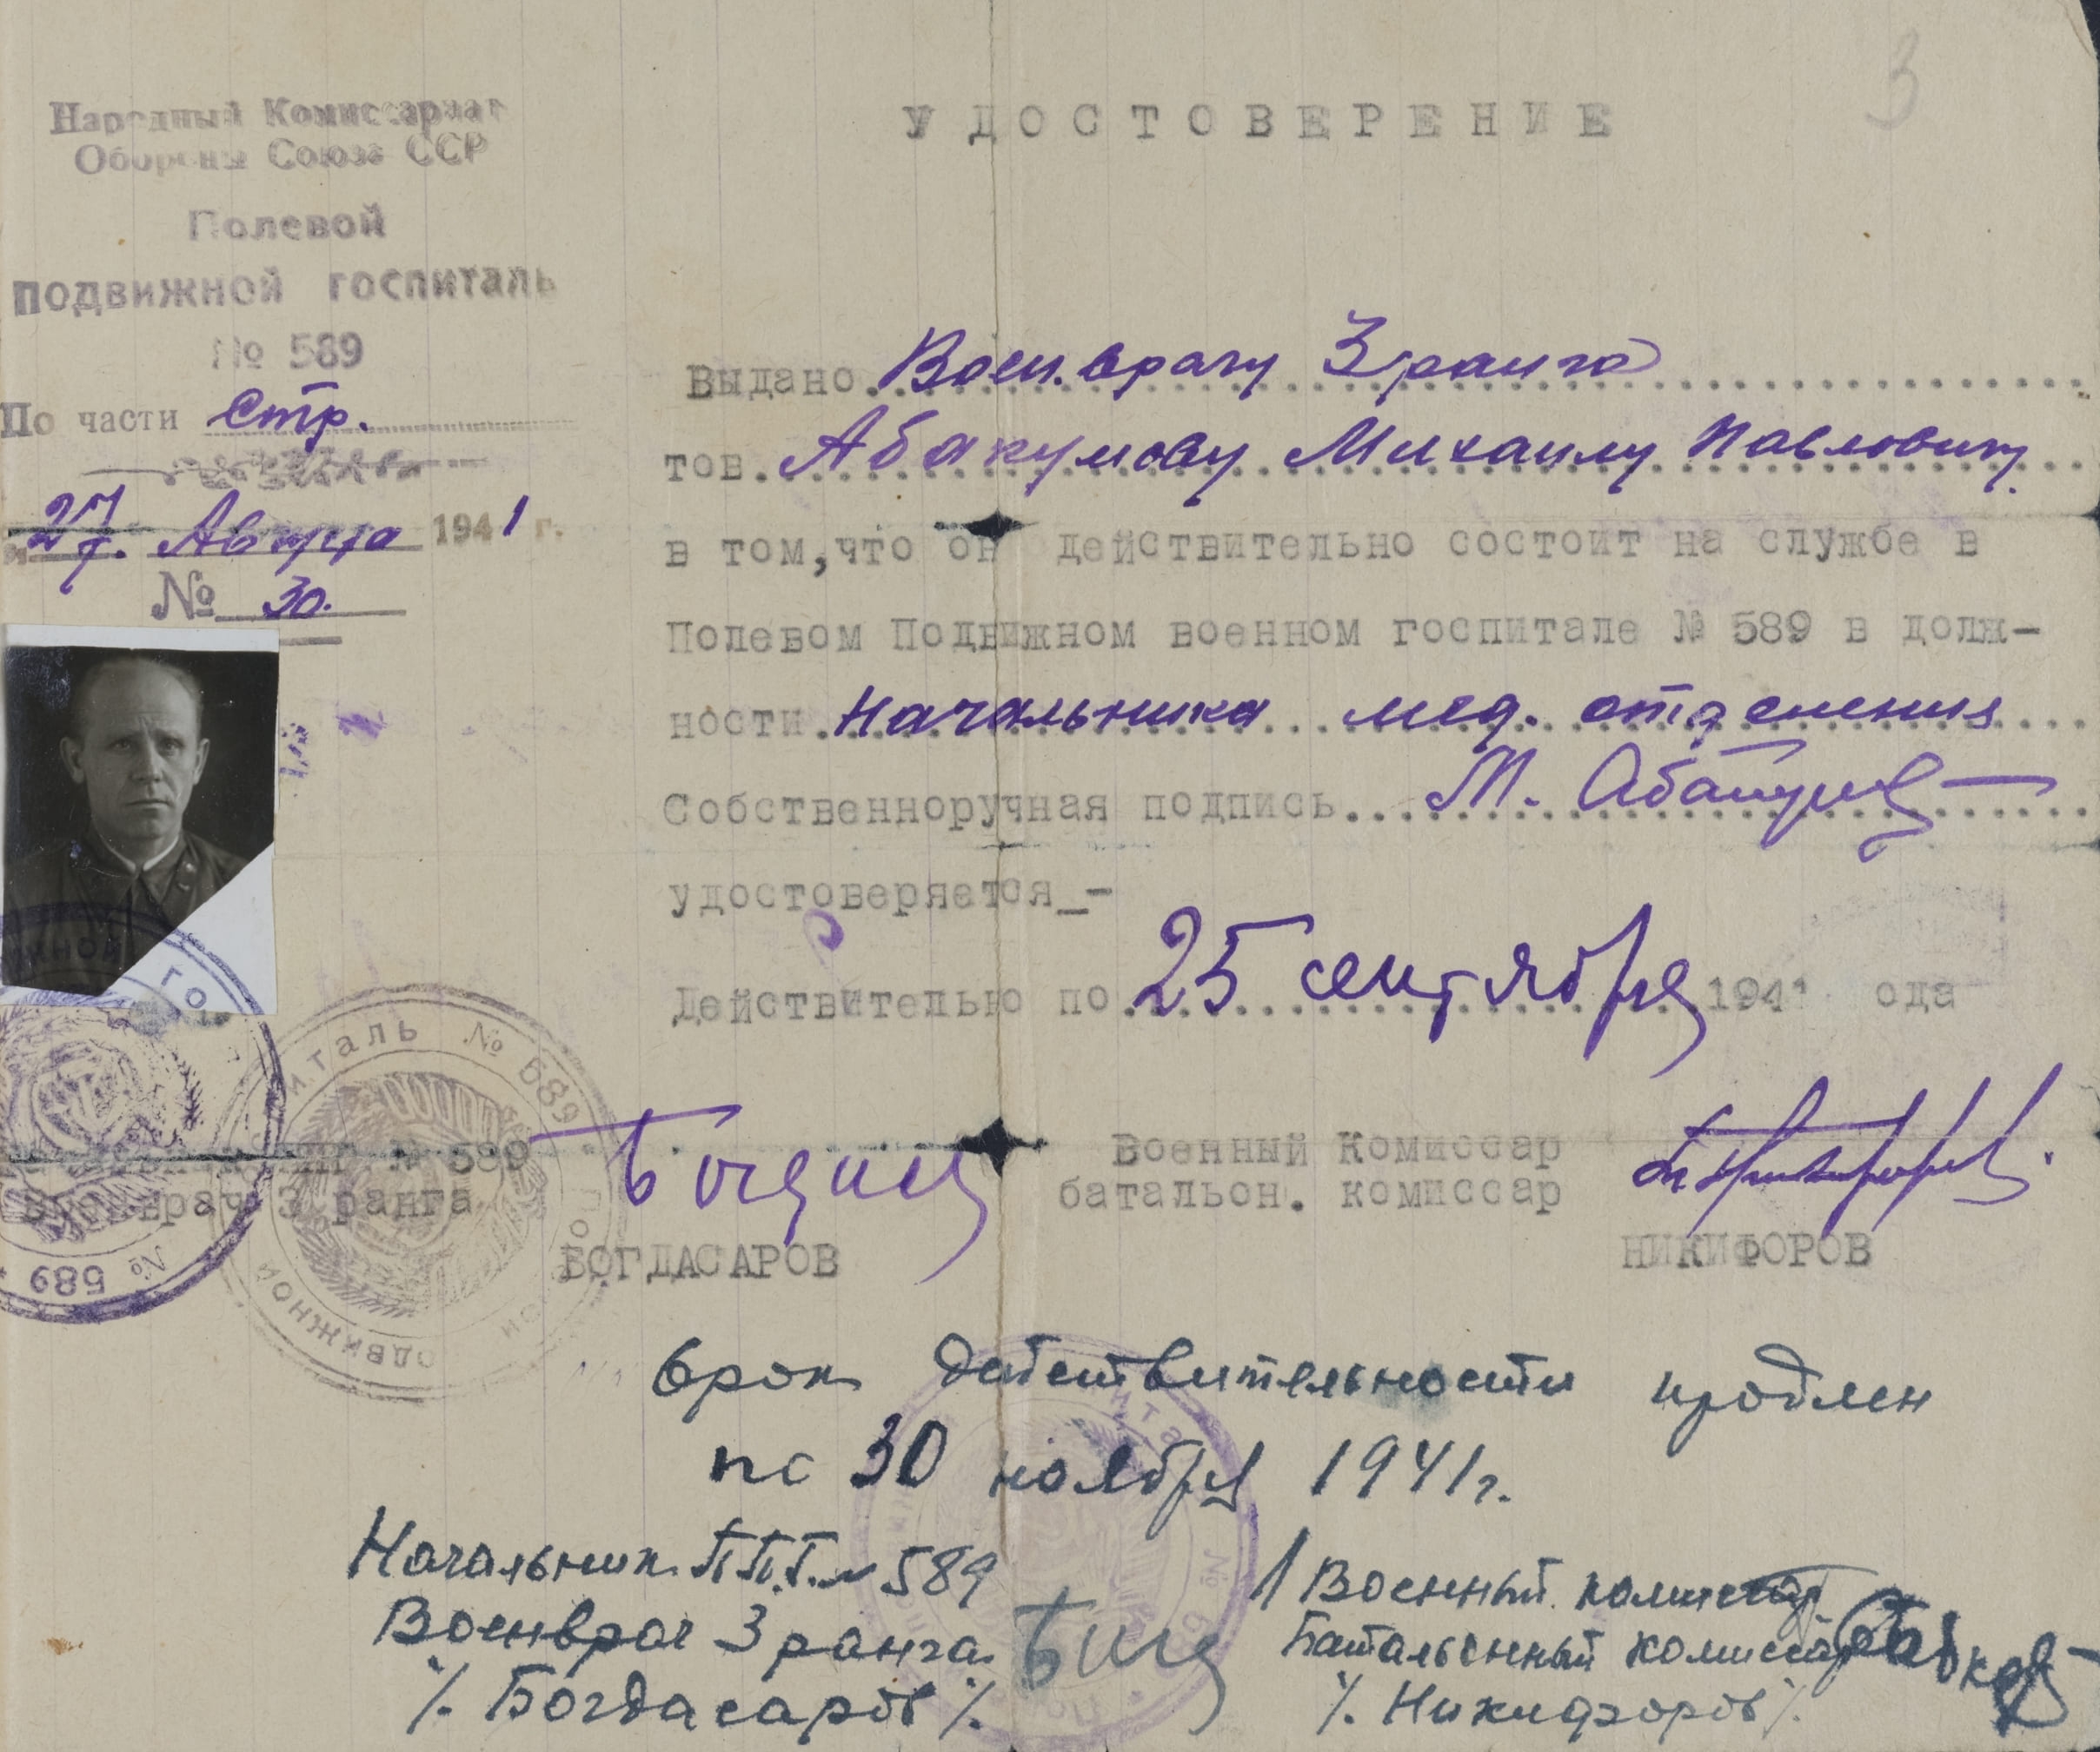 3
Народный Комиссариат
Обороны Союза ССР
Полевой
подвижной госпиталь
№ 589
По части Стр.
27. Августа 1941 г.
№ 30.
УДОСТОВЕРЕНИЕ
Выдано Воен.врачу 3 ранга
тов. Абакумову Михаилу Павловичу
в том, что он действительно состоит на службе в
Полевом Подвижном военном госпитале № 589 в долж-
ности Начальника мед. отделения
Собственноручная подпись М. Абакумов
удостоверяется_-
Действительно по 25 сентября 1941 ода
ППГ № 589
военврач 3 ранга
БОГДАСАРОВ
Военный Комиссар
батальон. комиссар
НИКИФОРОВ
движной гос
№ 589
питаль № 589
одвижной
Срок действительности продлен
по 30 ноября 1941г.
Начальник П.П.Г. № 589
Военврач 3 ранга
/. Богдасаров /.
Военный комиссар
Батальонный комиссар
/. Никифоров /.